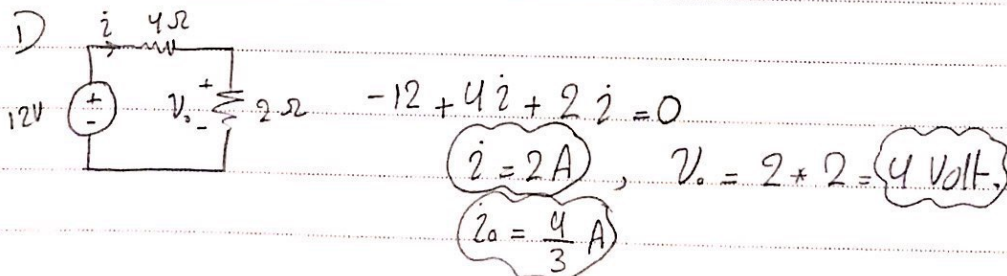 1)
i 4Ω
12V + - V₀ + - 2Ω
-12 + 4i + 2i = 0
i = 2A , V₀ = 2 * 2 = 4 Volt.
i₀ = 4/3 A